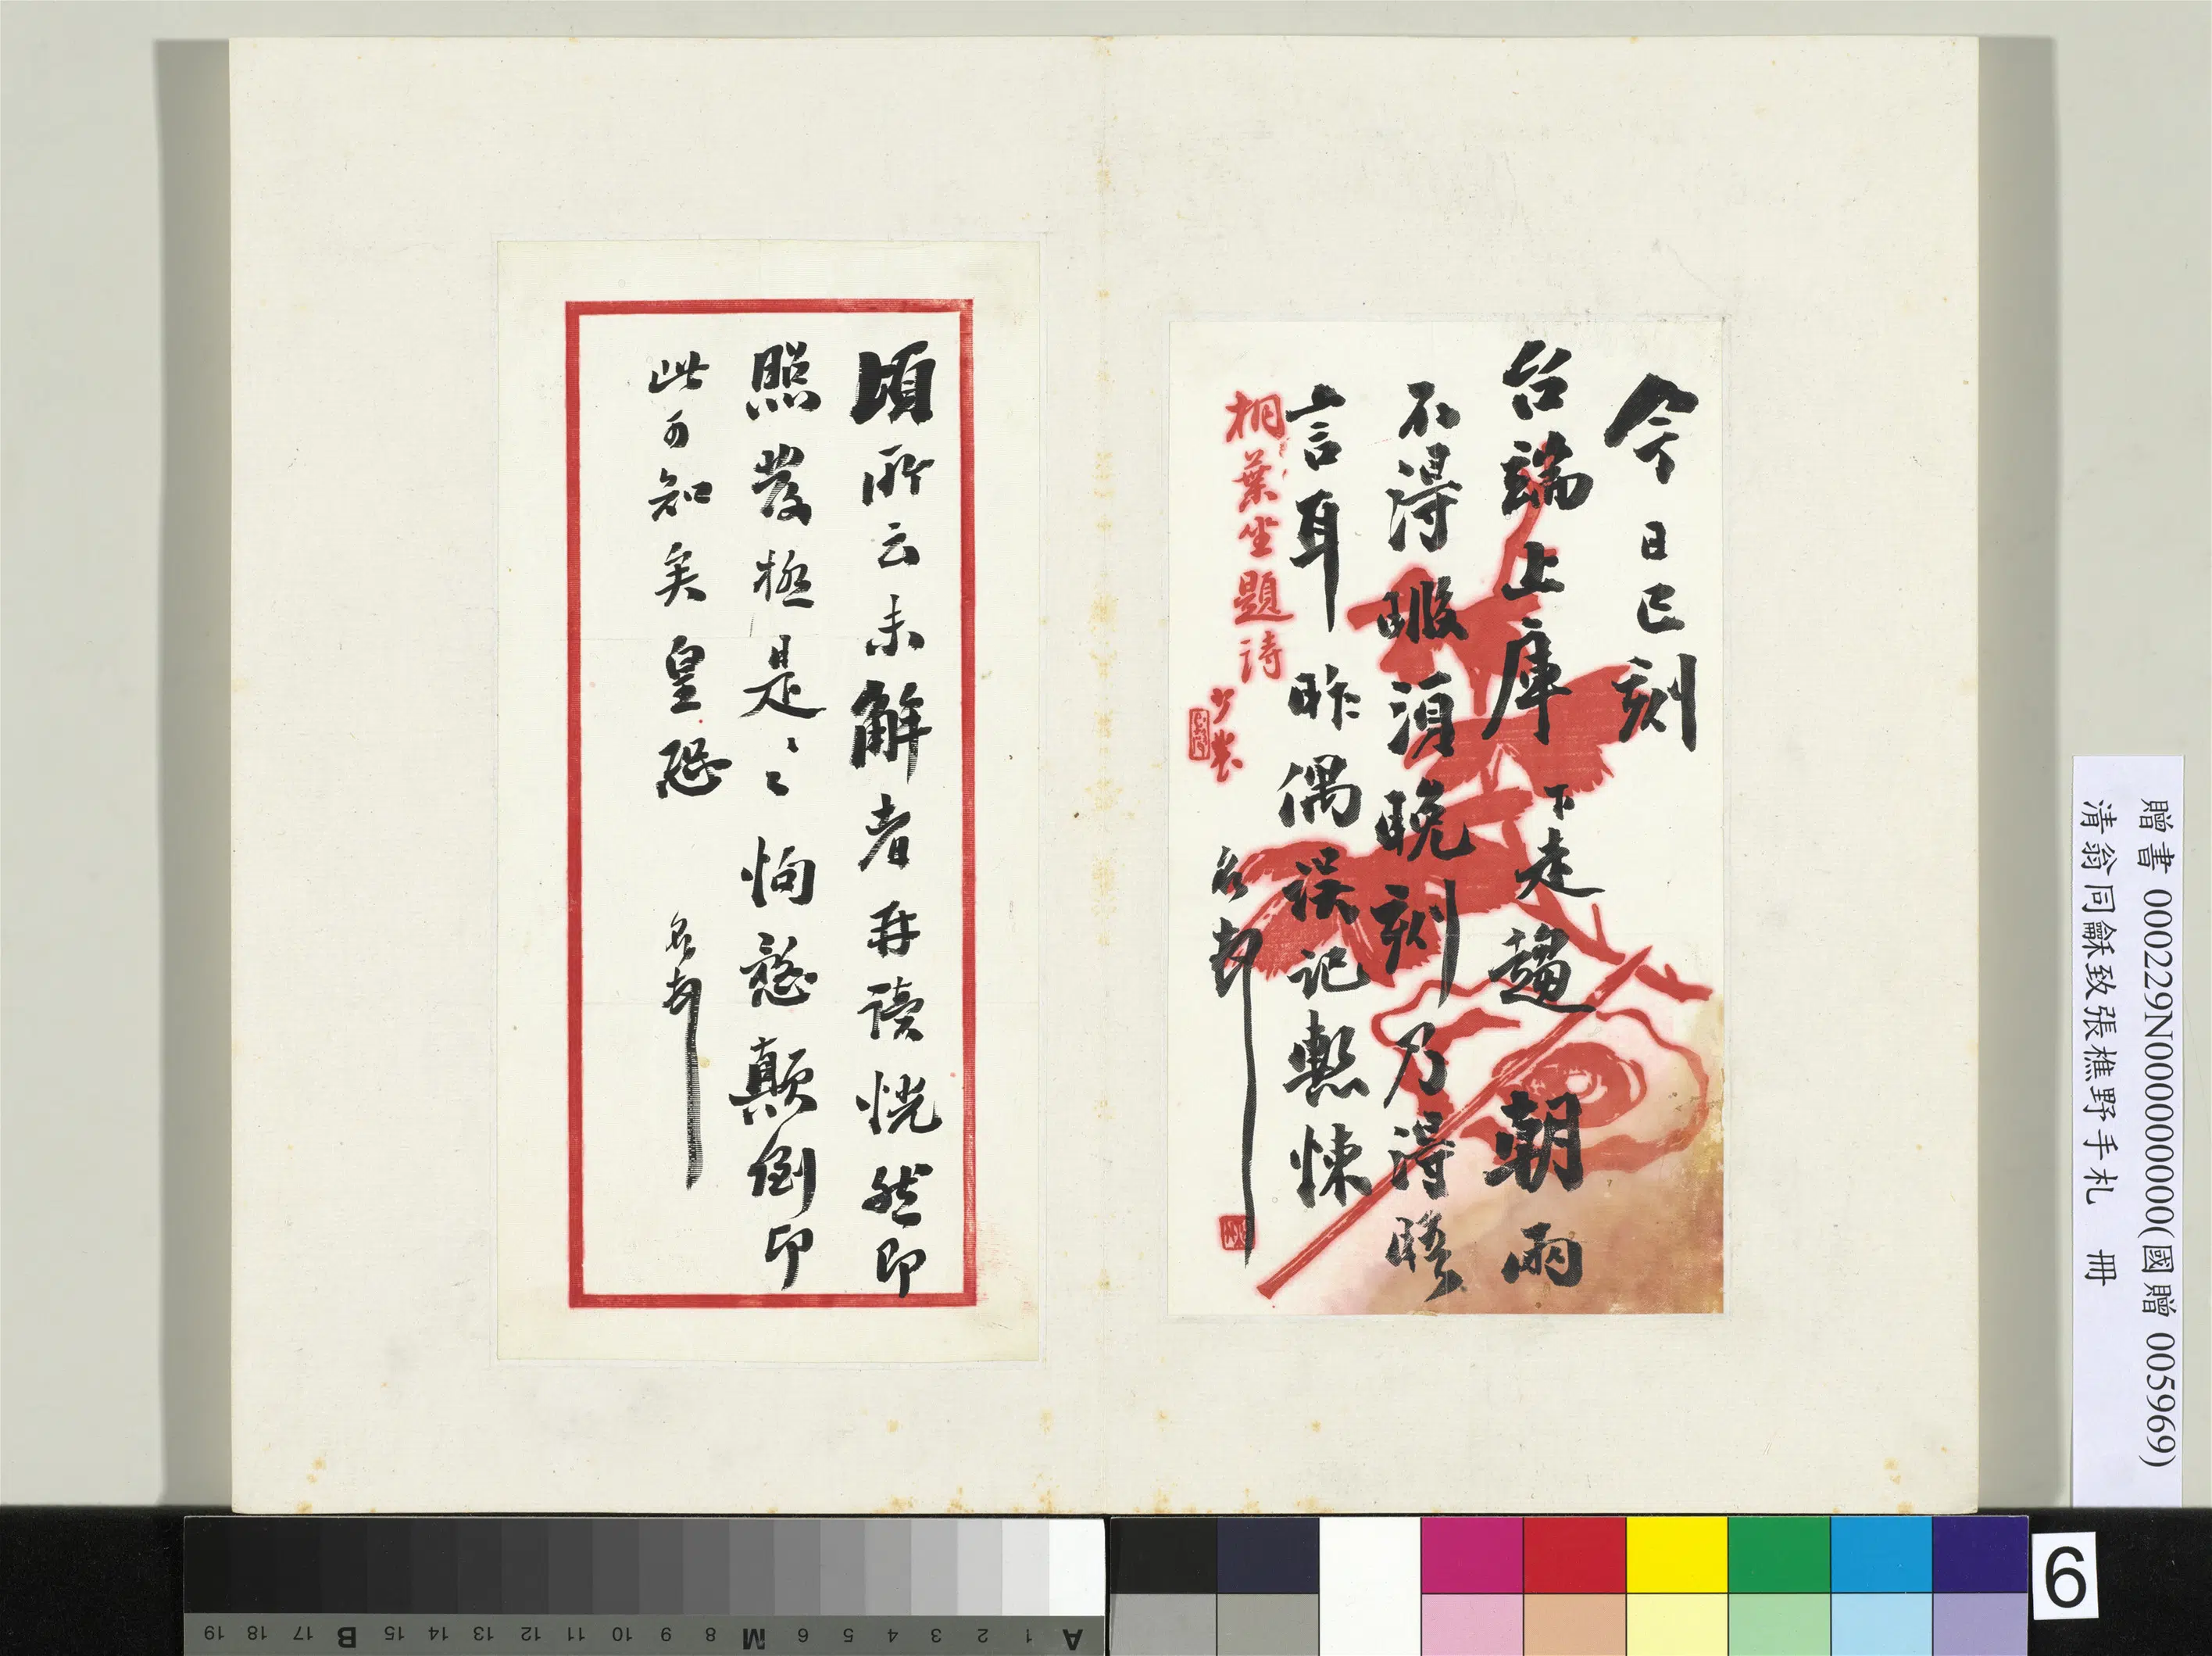 今日巳刻
台端上庫下走趨朝兩
不得暇須晚刻乃得晤
言耳昨偶誤記慙悚
名頓
桐葉坐題詩
頃所云未解者再讀恍然即
照發極是〻〻恂愨顛倒即
此可知矣皇恐
名頓
贈書 000229N000000000(國贈 005969)
清翁同龢致張樵野手札 冊
6
A 1 2 3 4 5 6 M 8 9 10 11 12 13 14 15 B 17 18 19